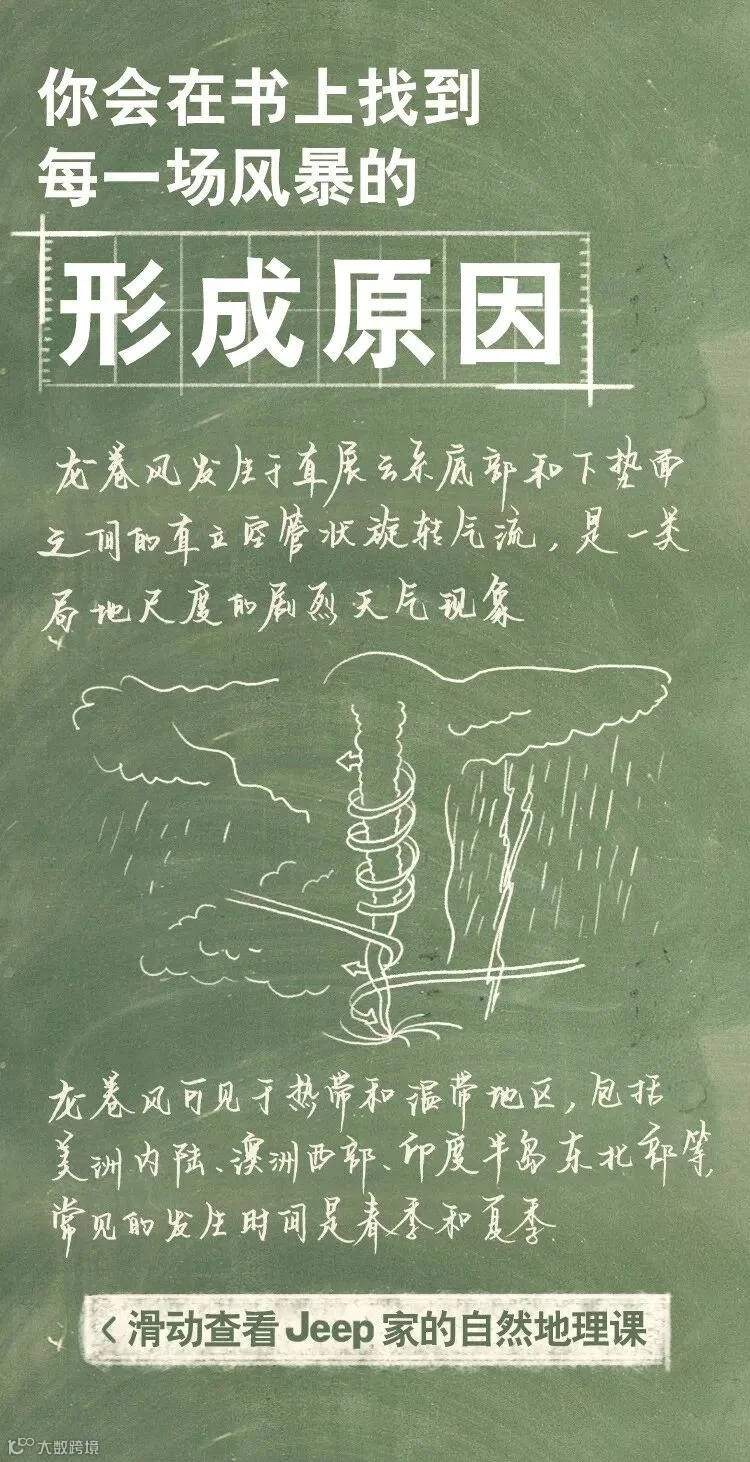 你会在书上找到
每一场风暴的
形成原因
龙卷风发生于直展云系底部和下垫面
之间的直立空管状旋转气流，是一类
局地尺度的剧烈天气现象
龙卷风可见于热带和温带地区，包括
美洲内陆、澳洲西部、印度半岛东北部等，
常见的发生时间是春季和夏季.
< 滑动查看 Jeep 家的自然地理课
大数跨境